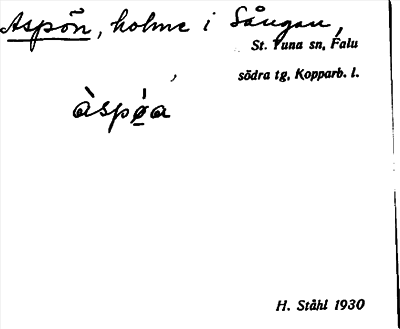 Aspön, holme i Sångan,
St. Tuna sn, Falu
södra tg, Kopparb. l.
àspø̀a
H. Ståhl 1930